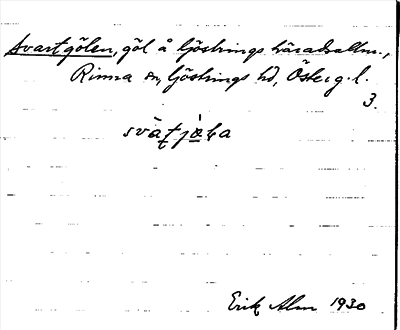 Svartgölen, göl å Göstrings häradsallm.,
Rinna sn, Göstrings hd, Österg. l.
3.
Erik Alm 1930